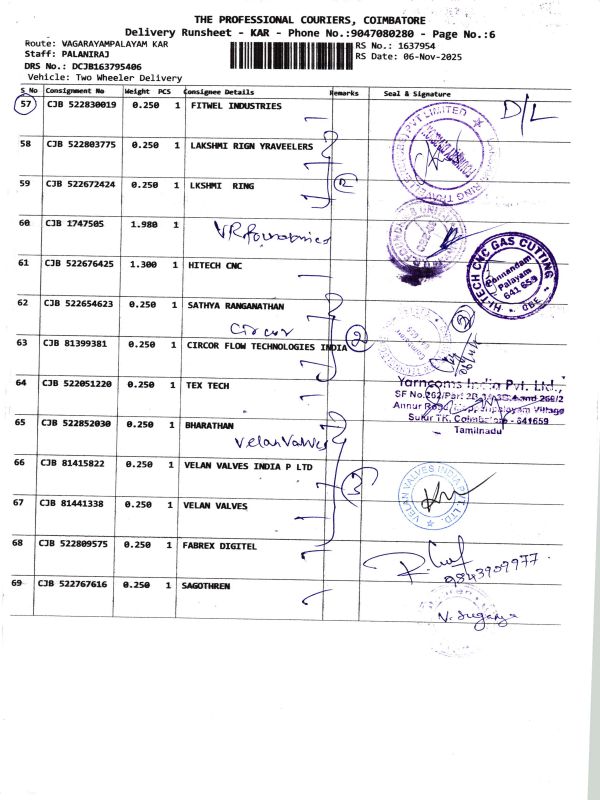 THE PROFESSIONAL COURIERS, COIMBATORE
Delivery Runsheet - KAR - Phone No.:9047080280 - Page No.:6
Route: VAGARAYAMPALAYAM KAR
RS No.: 1637954
Staff: PALANIRAJ
RS Date: 06-Nov-2025
DRS No.: DCJB163795406
Vehicle: Two Wheeler Delivery
S No Consignment No Weight PCS Consignee Details Remarks Seal & Signature
57 CJB 522830019 0.250 1 FITWEL INDUSTRIES D/L
58 CJB 522803775 0.250 1 LAKSHMI RIGN YRAVEELERS
59 CJB 522672424 0.250 1 LKSHMI RING 2
60 CJB 1747505 1.980 1 VR foundries
61 CJB 522676425 1.300 1 HITECH CNC
HI-TECH CNC GAS CUTTING
Ponnandam
Palayam
641 659
62 CJB 522654623 0.250 1 SATHYA RANGANATHAN
Circor
63 CJB 81399381 0.250 1 CIRCOR FLOW TECHNOLOGIES INDIA 2
64 CJB 522051220 0.250 1 TEX TECH
Yarncoms India Pvt. Ltd.,
Sulur TK, Coimbatore - 641659
Tamilnadu
65 CJB 522852030 0.250 1 BHARATHAN
Velan Valves
66 CJB 81415822 0.250 1 VELAN VALVES INDIA P LTD 3
VELAN VALVES INDIA PVT. LTD.
67 CJB 81441338 0.250 1 VELAN VALVES
68 CJB 522809575 0.250 1 FABREX DIGITEL
9843909977
69 CJB 522767616 0.250 1 SAGOTHREN
V. Suganya